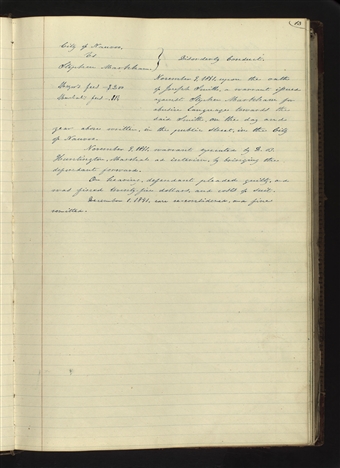 City of Nauvoo,
vs.
Stephen Markham } Disorderly Conduct.
November 7, 1841, upon the oath
of Joseph Smith, a warrant issued
against Stephen Markham for
abusive language towards the
said Smith on the day and
year above written, in the public street, in the City
of Nauvoo.
November 9, 1841, warrant executed by D. B.
Huntington, Marshal ad interim, by bringing the
defendant forward.
On hearing, defendant pleaded guilty, and
was fined twenty five dollars, and costs of suit.
December 1, 1841, case reconsidered, and fine
remitted.